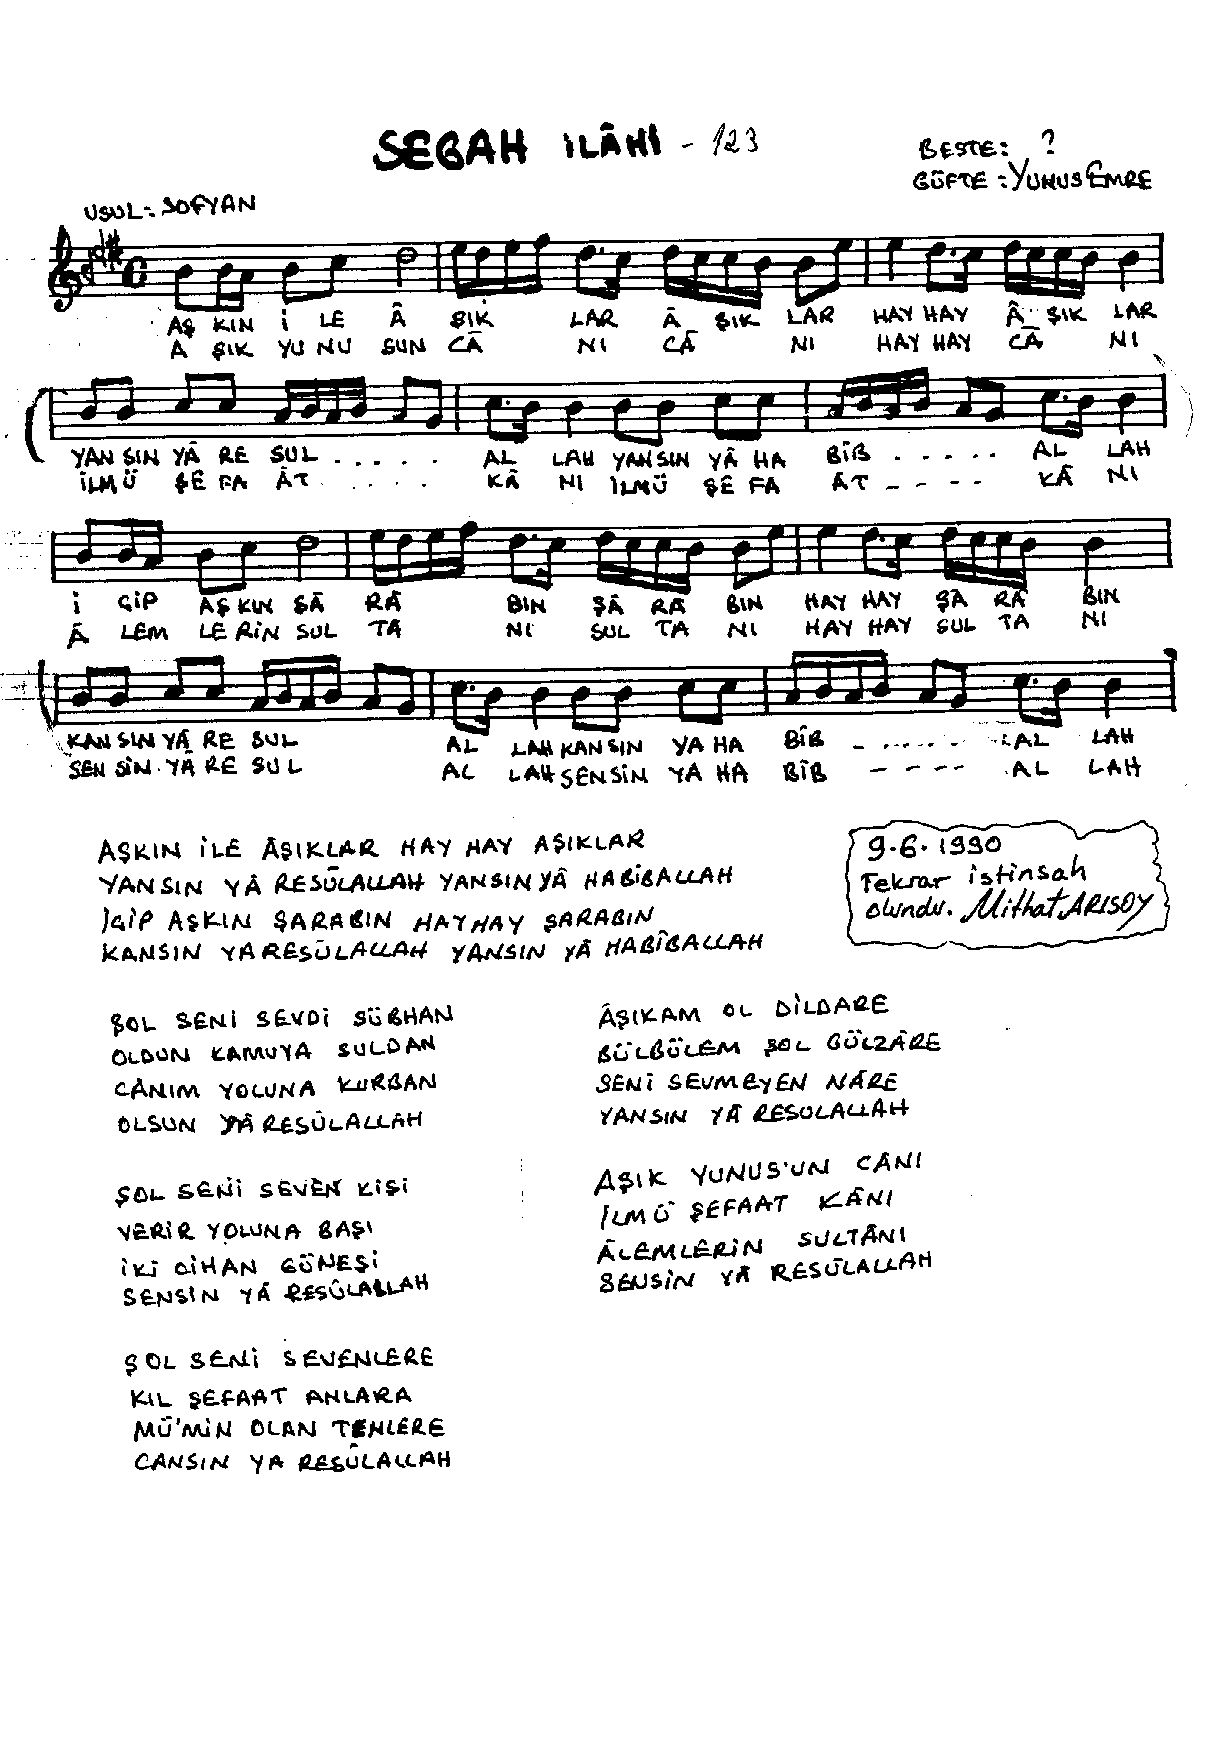 SEGAH İLÂHİ - 123
BESTE: ?
GÜFTE: YUNUS EMRE
USUL: SOFYAN
AŞ KIN İ LE Â ŞIK LAR Â ŞIK LAR HAY HAY Â ŞIK LAR
A ŞIK YU NU SUN CÂ NI CÂ NI HAY HAY CÂ NI
YAN SIN YÂ RE SUL . . . . . AL LAH YAN SIN YÂ HA BÎB . . . . . AL LAH
İLMÜ ŞE FA ÂT . . . . . KÂ NI İLMÜ ŞE FA ÂT - - - - - KÂ NI
İ ÇİP AŞ KIN ŞÂ RÂ BIN ŞÂ RÂ BIN HAY HAY ŞÂ RÂ BIN
Â LEM LE RİN SUL TA NI SUL TA NI HAY HAY SUL TA NI
KAN SIN YÂ RE SUL AL LAH KAN SIN YA HA BÎB - . . . . . AL LAH
SEN SİN YÂ RE SUL AL LAH SEN SİN YA HA BÎB - - - - AL LAH
AŞKIN İLE ÂŞIKLAR HAY HAY AŞIKLAR
YANSIN YÂ RESÛLALLAH YANSIN YÂ HABİBALLAH
İÇİP AŞKIN ŞARABIN HAY HAY ŞARABIN
KANSIN YA RESÛLALLAH YANSIN YÂ HABÎBALLAH
9.6.1990
Tekrar istinsah
olundu. Mithat ARISOY
ŞOL SENİ SEVDİ SÜBHAN
OLDUN KAMUYA SULDAN
CANIM YOLUNA KURBAN
OLSUN YÂ RESÛLALLAH
ŞOL SENİ SEVEN KİŞİ
VERİR YOLUNA BAŞI
İKİ CİHAN GÜNEŞİ
SENSİN YÂ RESÛLALLAH
ŞOL SENİ SEVENLERE
KIL ŞEFAAT ANLARA
MÜ'MİN OLAN TENLERE
CANSIN YA RESÛLALLAH
ÂŞIKAM OL DİLDARE
BÜLBÜLEM ŞOL GÜLZÂRE
SENİ SEVMEYEN NÂRE
YANSIN YÂ RESULALLAH
AŞIK YUNUS'UN CANI
İLMÜ ŞEFAAT KÂNI
ÂLEMLERİN SULTÂNI
SENSİN YÂ RESÛLALLAH